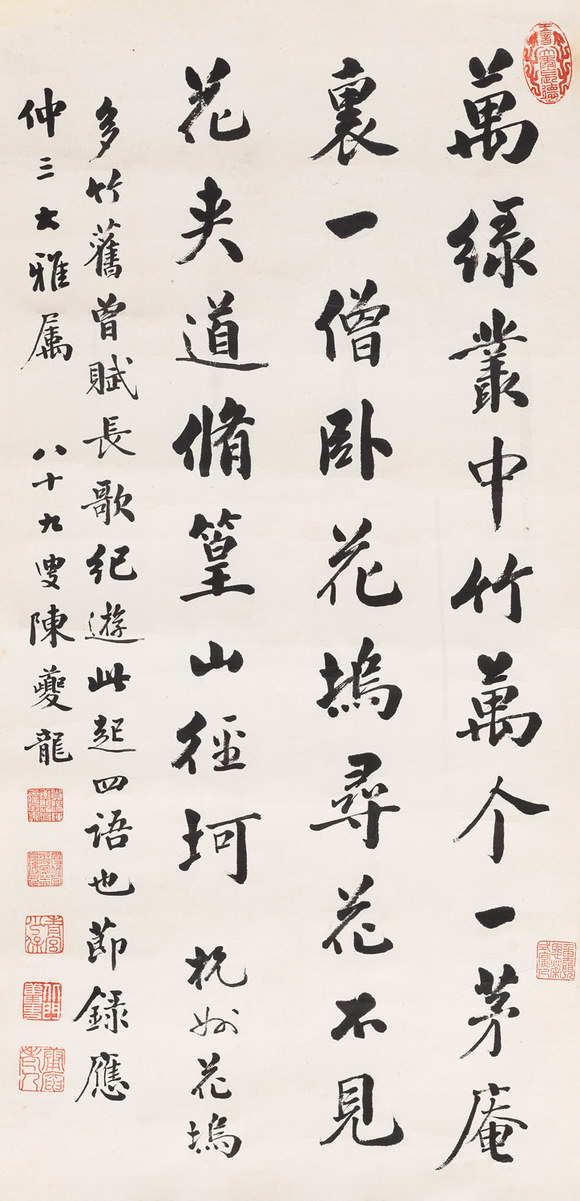 萬綠叢中竹萬个一茅庵
裏一僧卧花塢尋花不見
花夹道脩篁山徑坷杭州花塢
多竹舊曾賦長歌纪遊此起四语也節錄應
仲三大雅属八十九叟陳夔龍